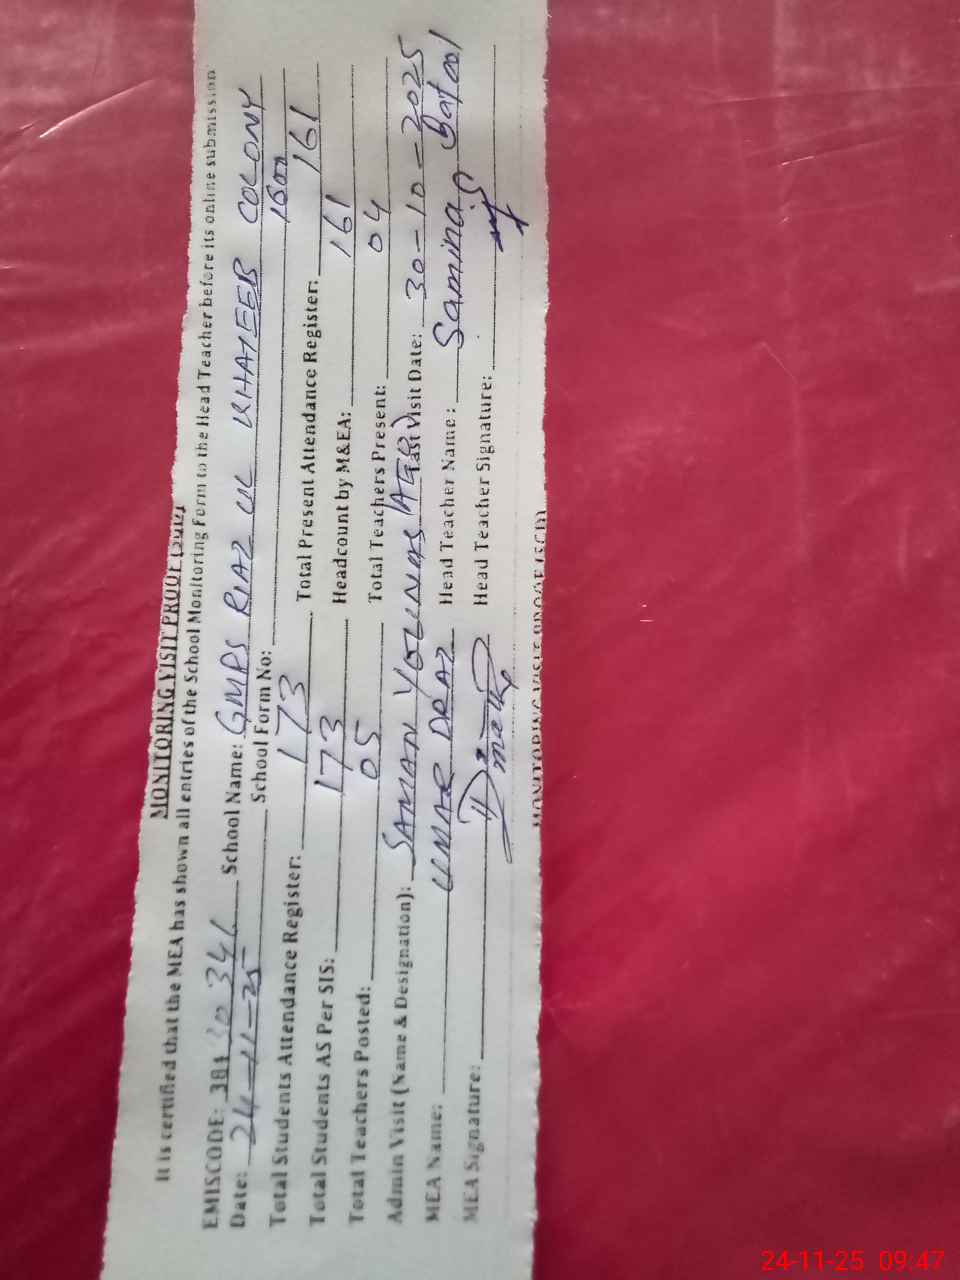 MONITORING VISIT PROOF
It is certified that the MEA has shown all entries of the School Monitoring Form to the Head Teacher before its online submission
EMISCODE: 38430341 School Name: GMPS RIAZ UL KHATEEB COLONY
Date: 24-11-25 School Form No:
Total Students Attendance Register: 173 Total Present Attendance Register: 161
Total Students AS Per SIS: 173 Headcount by M&EA: 161
Total Teachers Posted: 05 Total Teachers Present: 04
Admin Visit (Name & Designation): SAMAN YOUNAS (AEO) Last Visit Date: 30-10-2025
MEA Name: UMAR DRAZ Head Teacher Name: Samina Batool
MEA Signature: Head Teacher Signature:
MONITORING VISIT PROOF
24-11-25 09:47